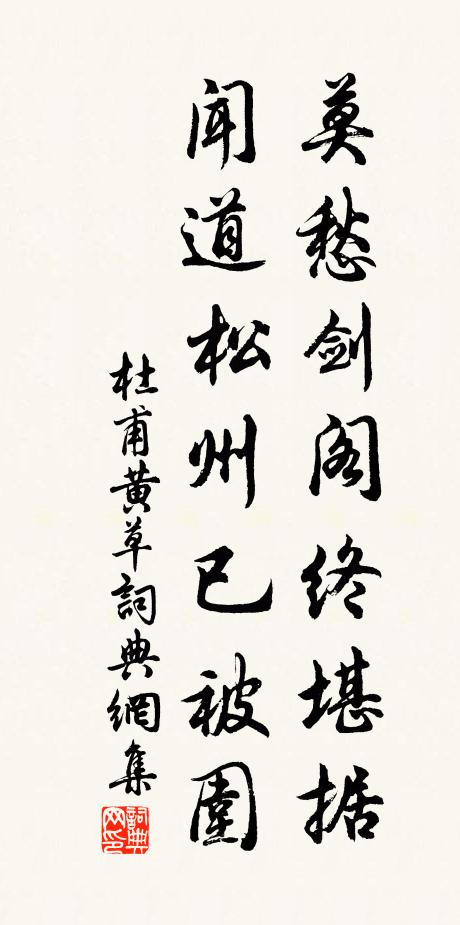 莫愁剑阁终堪据
闻道松州已被围
杜甫黄草詞典網集
詞典网印